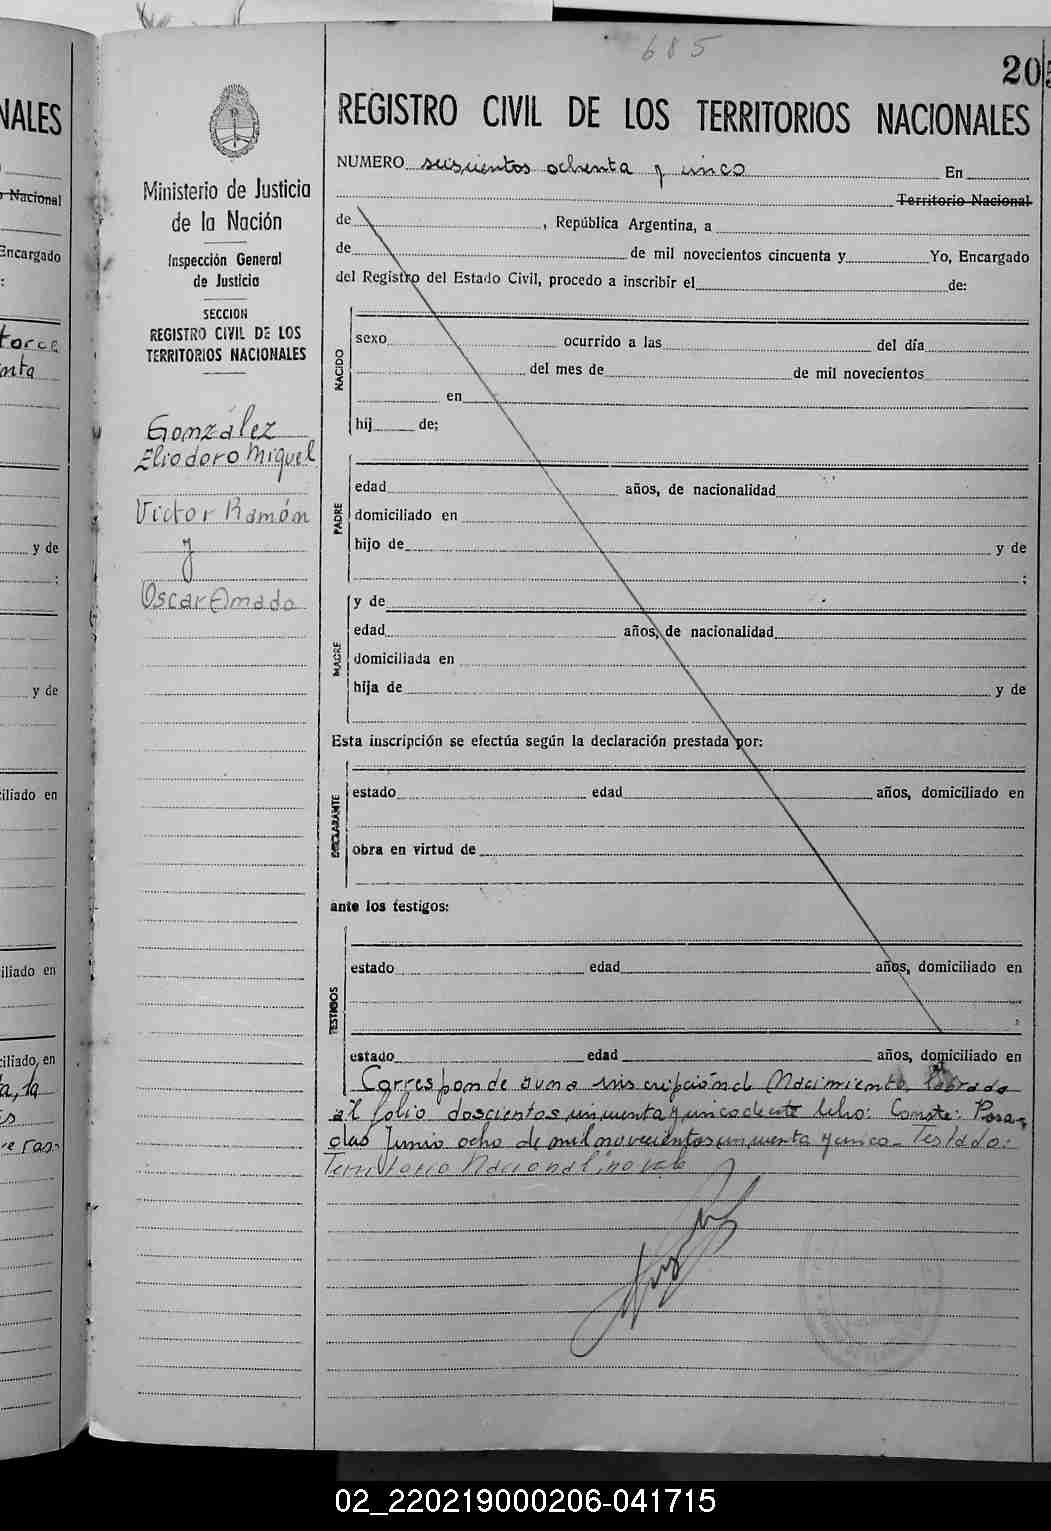 685
205
NALES
Nacional
Encargado
:
torce
nta
y de
:
y de
iliado en
iliado en
ciliado, en
a, la
s
e ras
Ministerio de Justicia
de la Nación
Inspección General
de Justicia
SECCION
REGISTRO CIVIL DE LOS
TERRITORIOS NACIONALES
González
Eliodoro Miguel
Victor Ramón
y
Oscar Amado
REGISTRO CIVIL DE LOS TERRITORIOS NACIONALES
NUMERO seiscientos ochenta y cinco En
Territorio Nacional
de , República Argentina, a
de de mil novecientos cincuenta y Yo, Encargado
del Registro del Estado Civil, procedo a inscribir el de:
NACIDO
sexo ocurrido a las del día
del mes de de mil novecientos
en
hij de;
PADRE
edad años, de nacionalidad
domiciliado en
hijo de y de
;
MADRE
y de
edad años, de nacionalidad
domiciliada en
hija de y de
Esta inscripción se efectúa según la declaración prestada por:
DECLARANTE
estado edad años, domiciliado en
obra en virtud de
ante los testigos:
TESTIGOS
estado edad años, domiciliado en
;
estado edad años, domiciliado en
Corresponde a una inscripción d Nacimiento, labrada
al folio doscientos cincuenta y cinco de este libro: Conste: Posa-
das Junio ocho de mil novecientos cincuenta y cinco - Testado:
Territorio Nacional: no vale
02_220219000206-041715